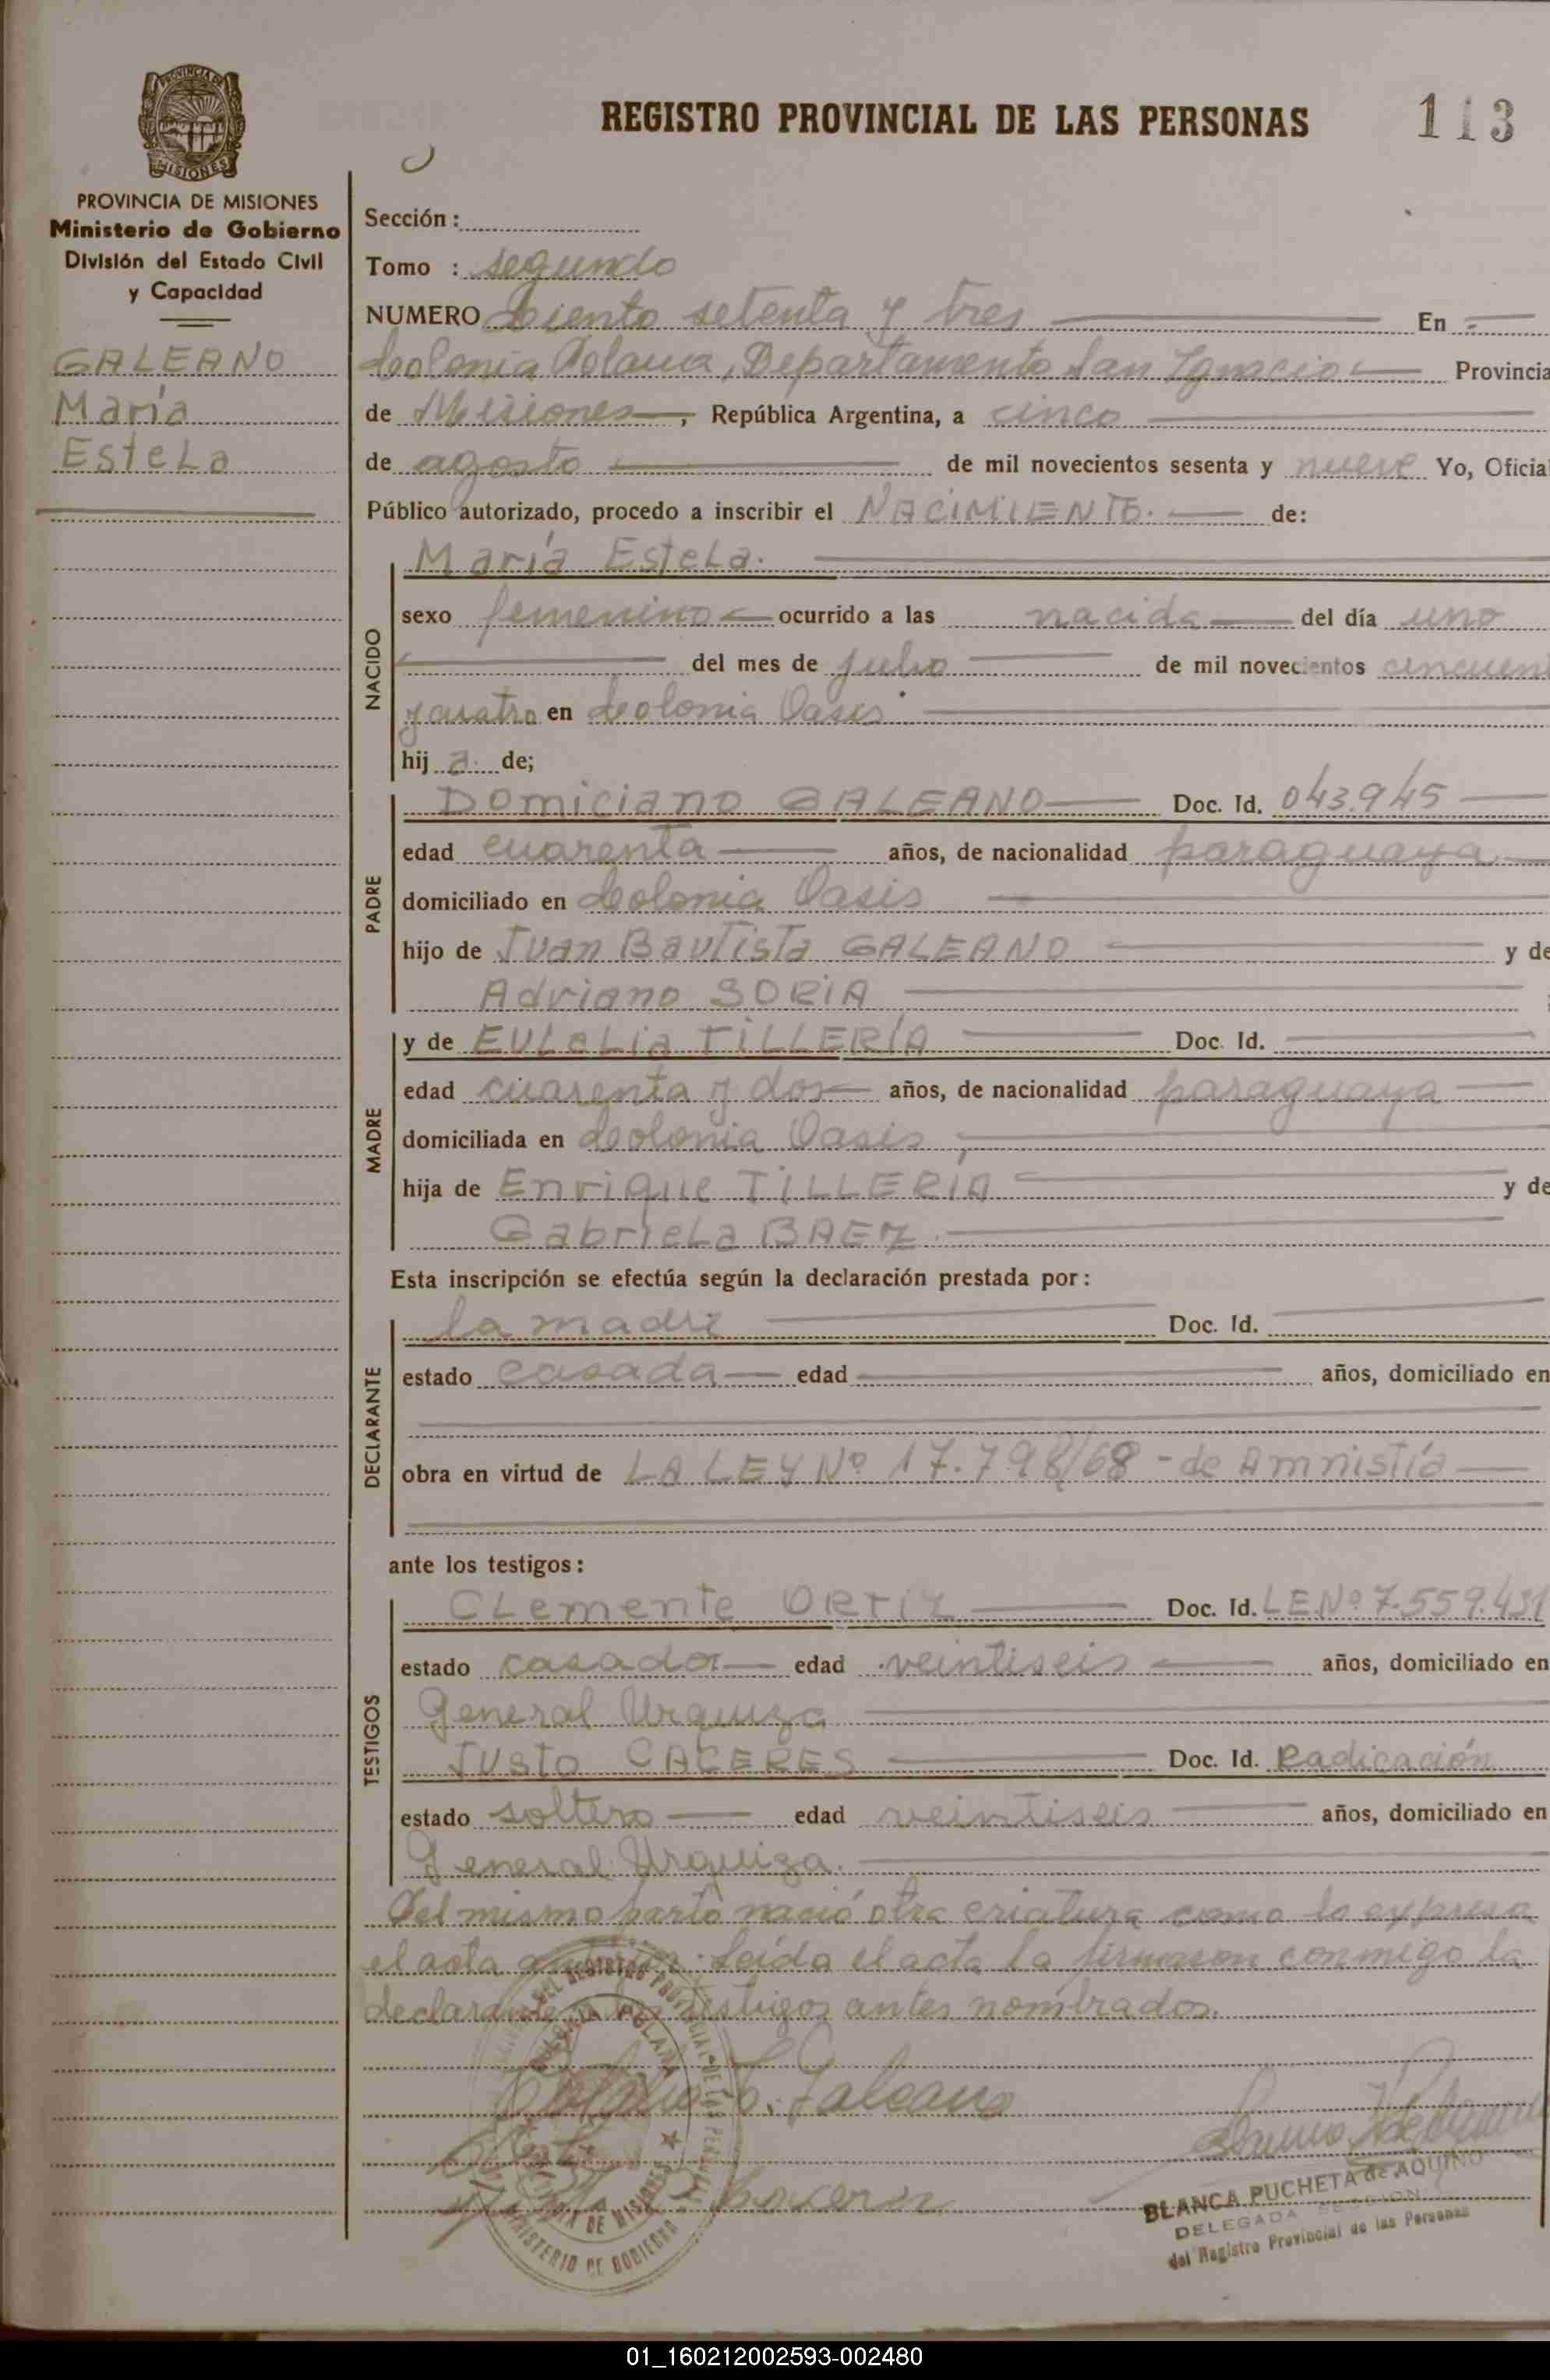 REGISTRO PROVINCIAL DE LAS PERSONAS
113
PROVINCIA DE MISIONES
PROVINCIA DE MISIONES
Ministerio de Gobierno
División del Estado Civil
y Capacidad
GALEANO
María
Estela
Sección :
Tomo : segundo
NUMERO Ciento setenta y tres En
Colonia Polana, Departamento San Ignacio Provincia
de Misiones, República Argentina, a cinco
de agosto de mil novecientos sesenta y nueve Yo, Oficial
Público autorizado, procedo a inscribir el NACIMIENTO. de:
NACIDO
María Estela.
sexo femenino ocurrido a las nacida del día uno
del mes de julio de mil novecientos cincuen
y cuatro en Colonia Oasis
hij a de;
PADRE
Domiciano GALEANO Doc. Id. 043.945
edad cuarenta años, de nacionalidad paraguaya
domiciliado en Colonia Oasis
hijo de Juan Bautista GALEANO y de
Adriano SORIA
MADRE
y de EULELIA TILLERÍA Doc. Id.
edad cuarenta y dos años, de nacionalidad paraguaya
domiciliada en Colonia Oasis
hija de Enrique TILLERÍA y de
Gabriela BAEZ
Esta inscripción se efectúa según la declaración prestada por :
DECLARANTE
la madre Doc. Id.
estado casada edad años, domiciliado en
obra en virtud de LA LEY Nº 17.798/68 - de Amnistía
ante los testigos :
TESTIGOS
Clemente ORTIZ Doc. Id. L.E.Nº 7.559.431
estado casado edad veintiseis años, domiciliado en
General Urquiza
Justo CACERES Doc. Id. Radicación
estado soltero edad veintiseis años, domiciliado en
General Urquiza.
Del mismo parto nació otra criatura como lo expresa
el acta anterior. Leída el acta la firmaron conmigo la
declarante y los testigos antes nombrados.
Galeano
BLANCA PUCHETA de AQUINO
DELEGADA SECCION
del Registro Provincial de las Personas
MINISTERIO DE GOBIERNO
01_160212002593-002480